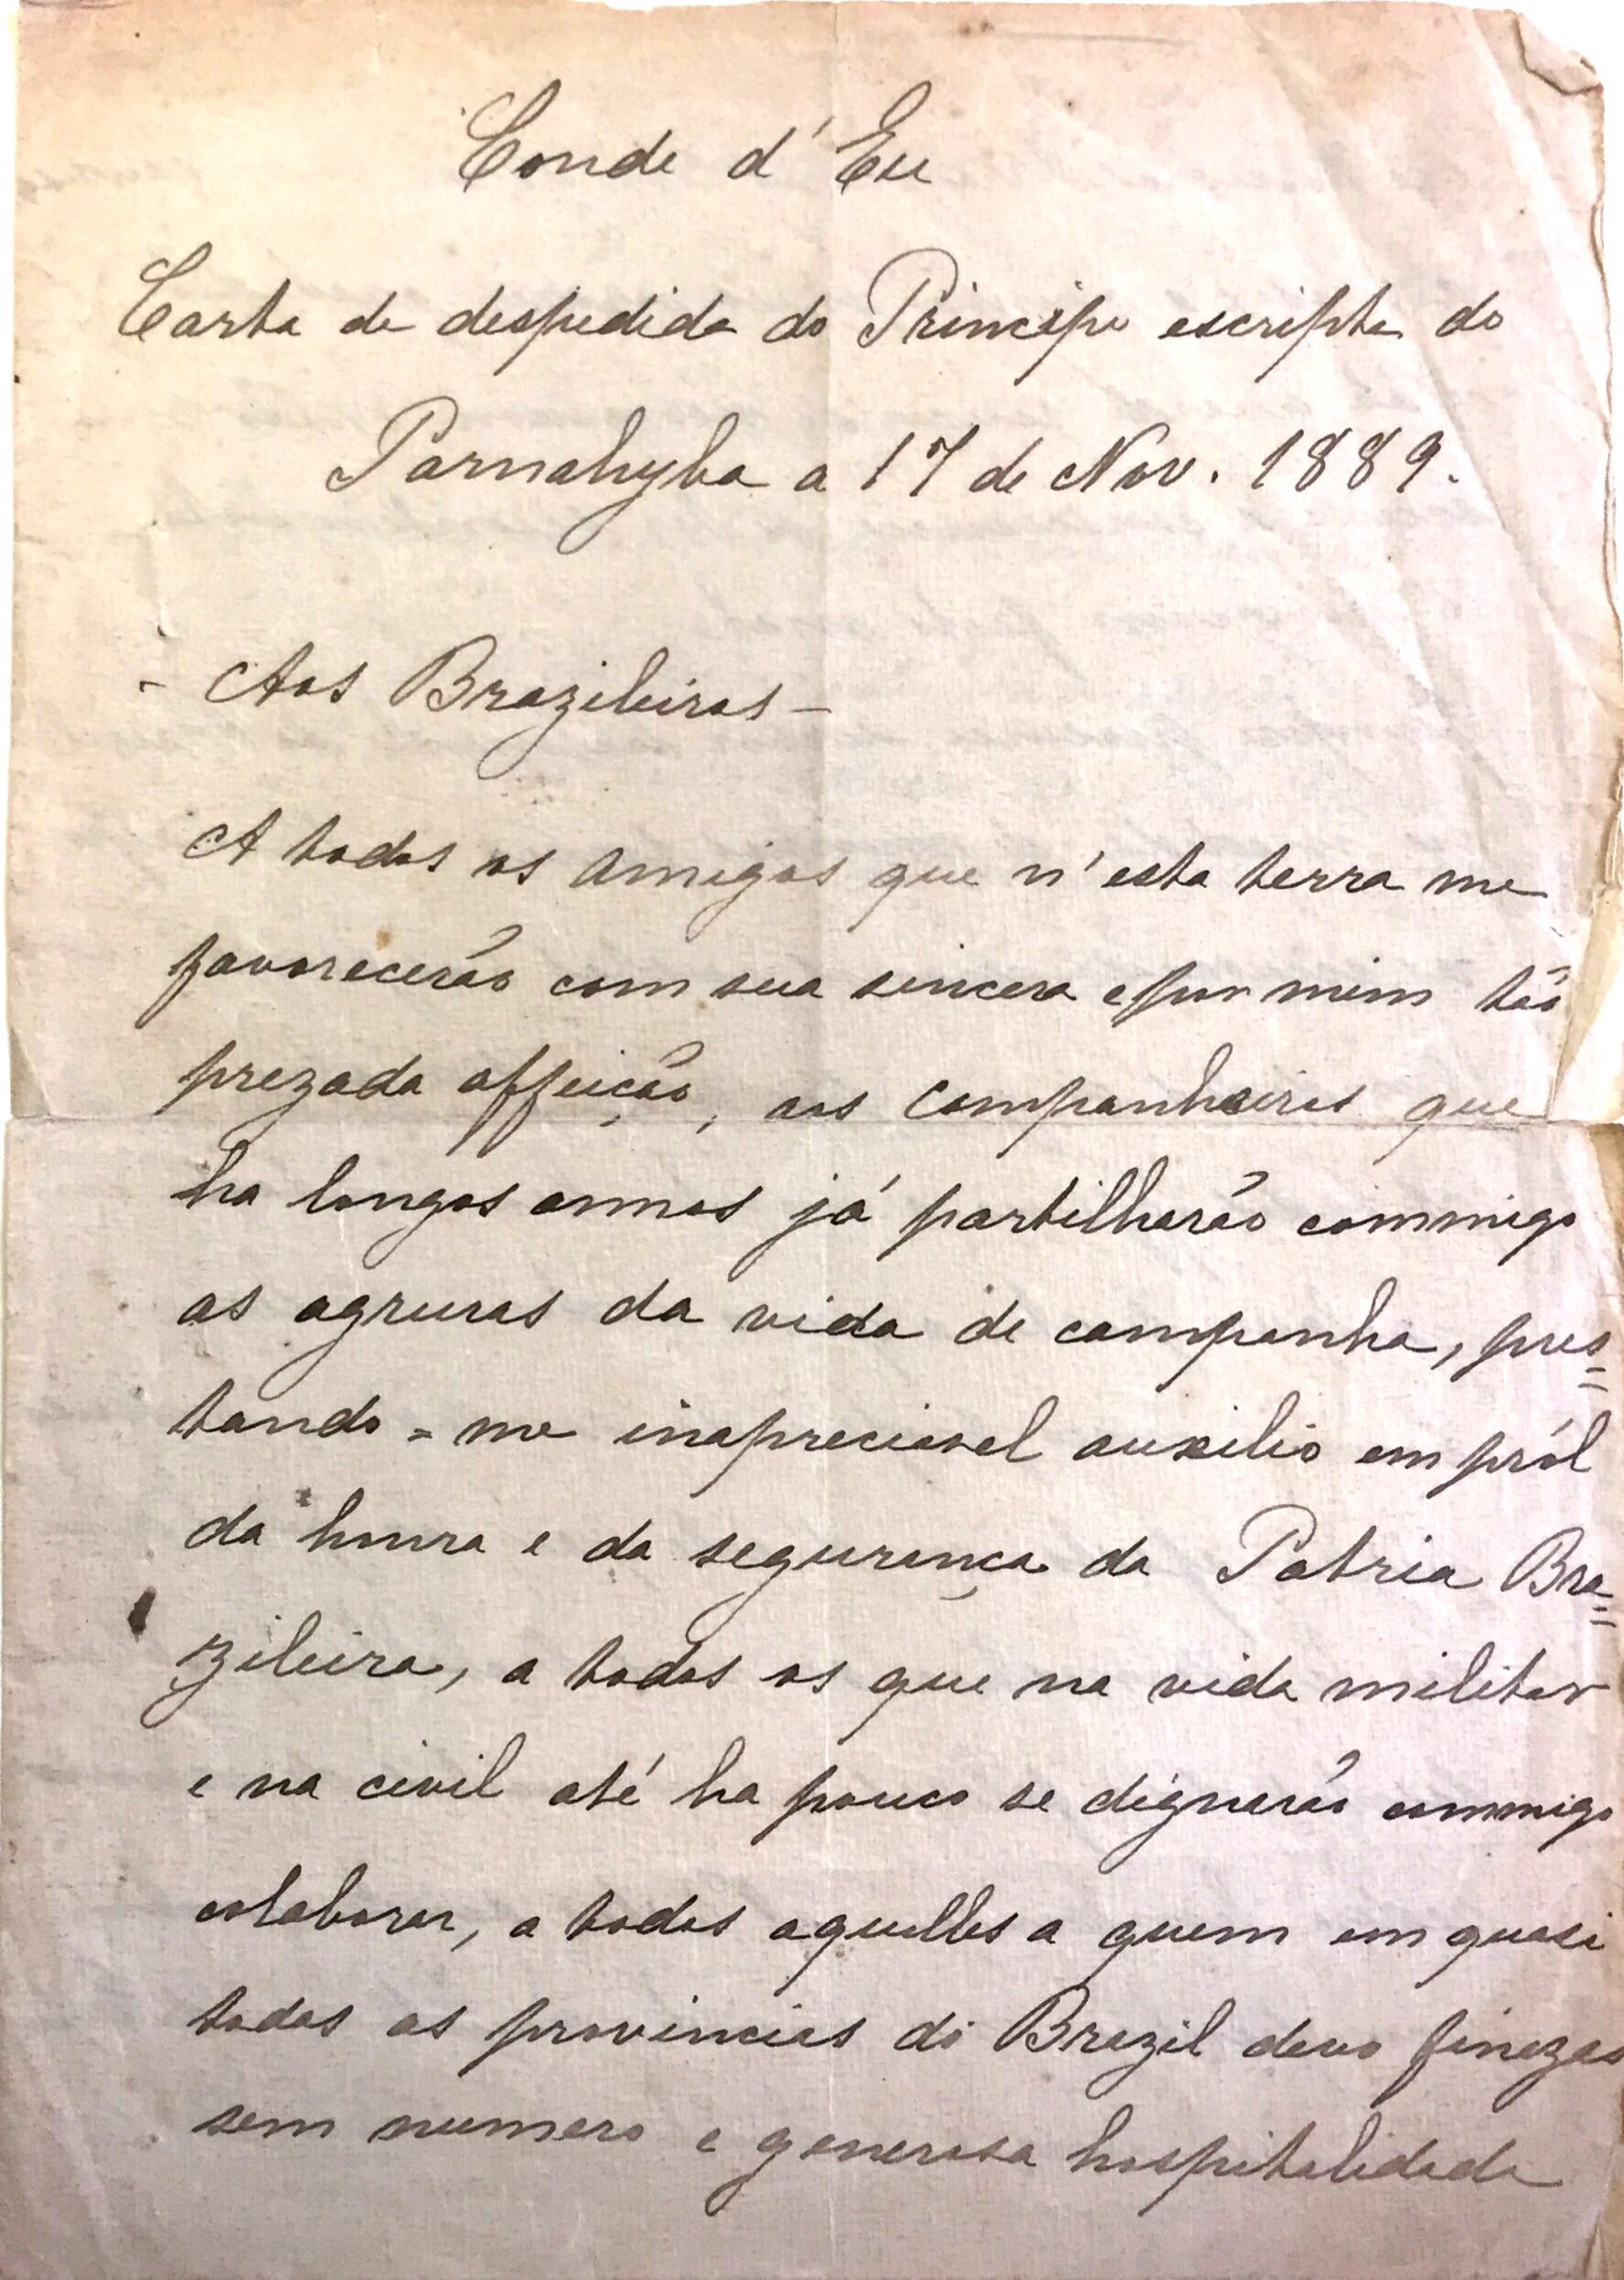 Conde d'Eu
Carta de despedida do Principe escripta do
Parnahyba a 17 de Nov. 1889.
- Aos Brazileiros -
A todos os amigos que n'esta terra me
favorecerão com sua sincera e por mim tão
prezada affeição, aos companheiros que
ha longos annos já partilharão commigo
as agruras da vida de campanha, pres=
tando=me inapreciavel auxilio em pról
da honra e da segurança da Patria Bra=
zileira, a todos os que na vida militar
e na civil até ha pouco se dignarão commigo
colaborar, a todos aquelles a quem em quasi
todas as provincias do Brazil devo finezas
sem numero e generosa hospitalidade